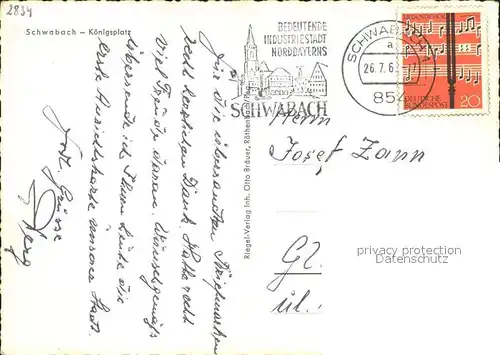 2834
Schwabach – Königsplatz
BEDEUTENDE
INDUSTRIESTADT
NORDBAYERNS
SCHWABACH
SCHWABACH 1
a
26.7.6
854
DEUTSCHE
BUNDESPOST
20
Für die übersandten Briefmarken
recht herzlichen Dank. Hatte recht
viel Freude daran. Wunschgemäß
übersende ich Ihnen heute die
erste Ansichtskarte unserer Stadt.
Frdl. Grüsse
Riegel-Verlag Inh. Otto Bräuer, Röthenbach/Peg.
Herrn
Josef Zann
privacy protection
DANMARKPHIL